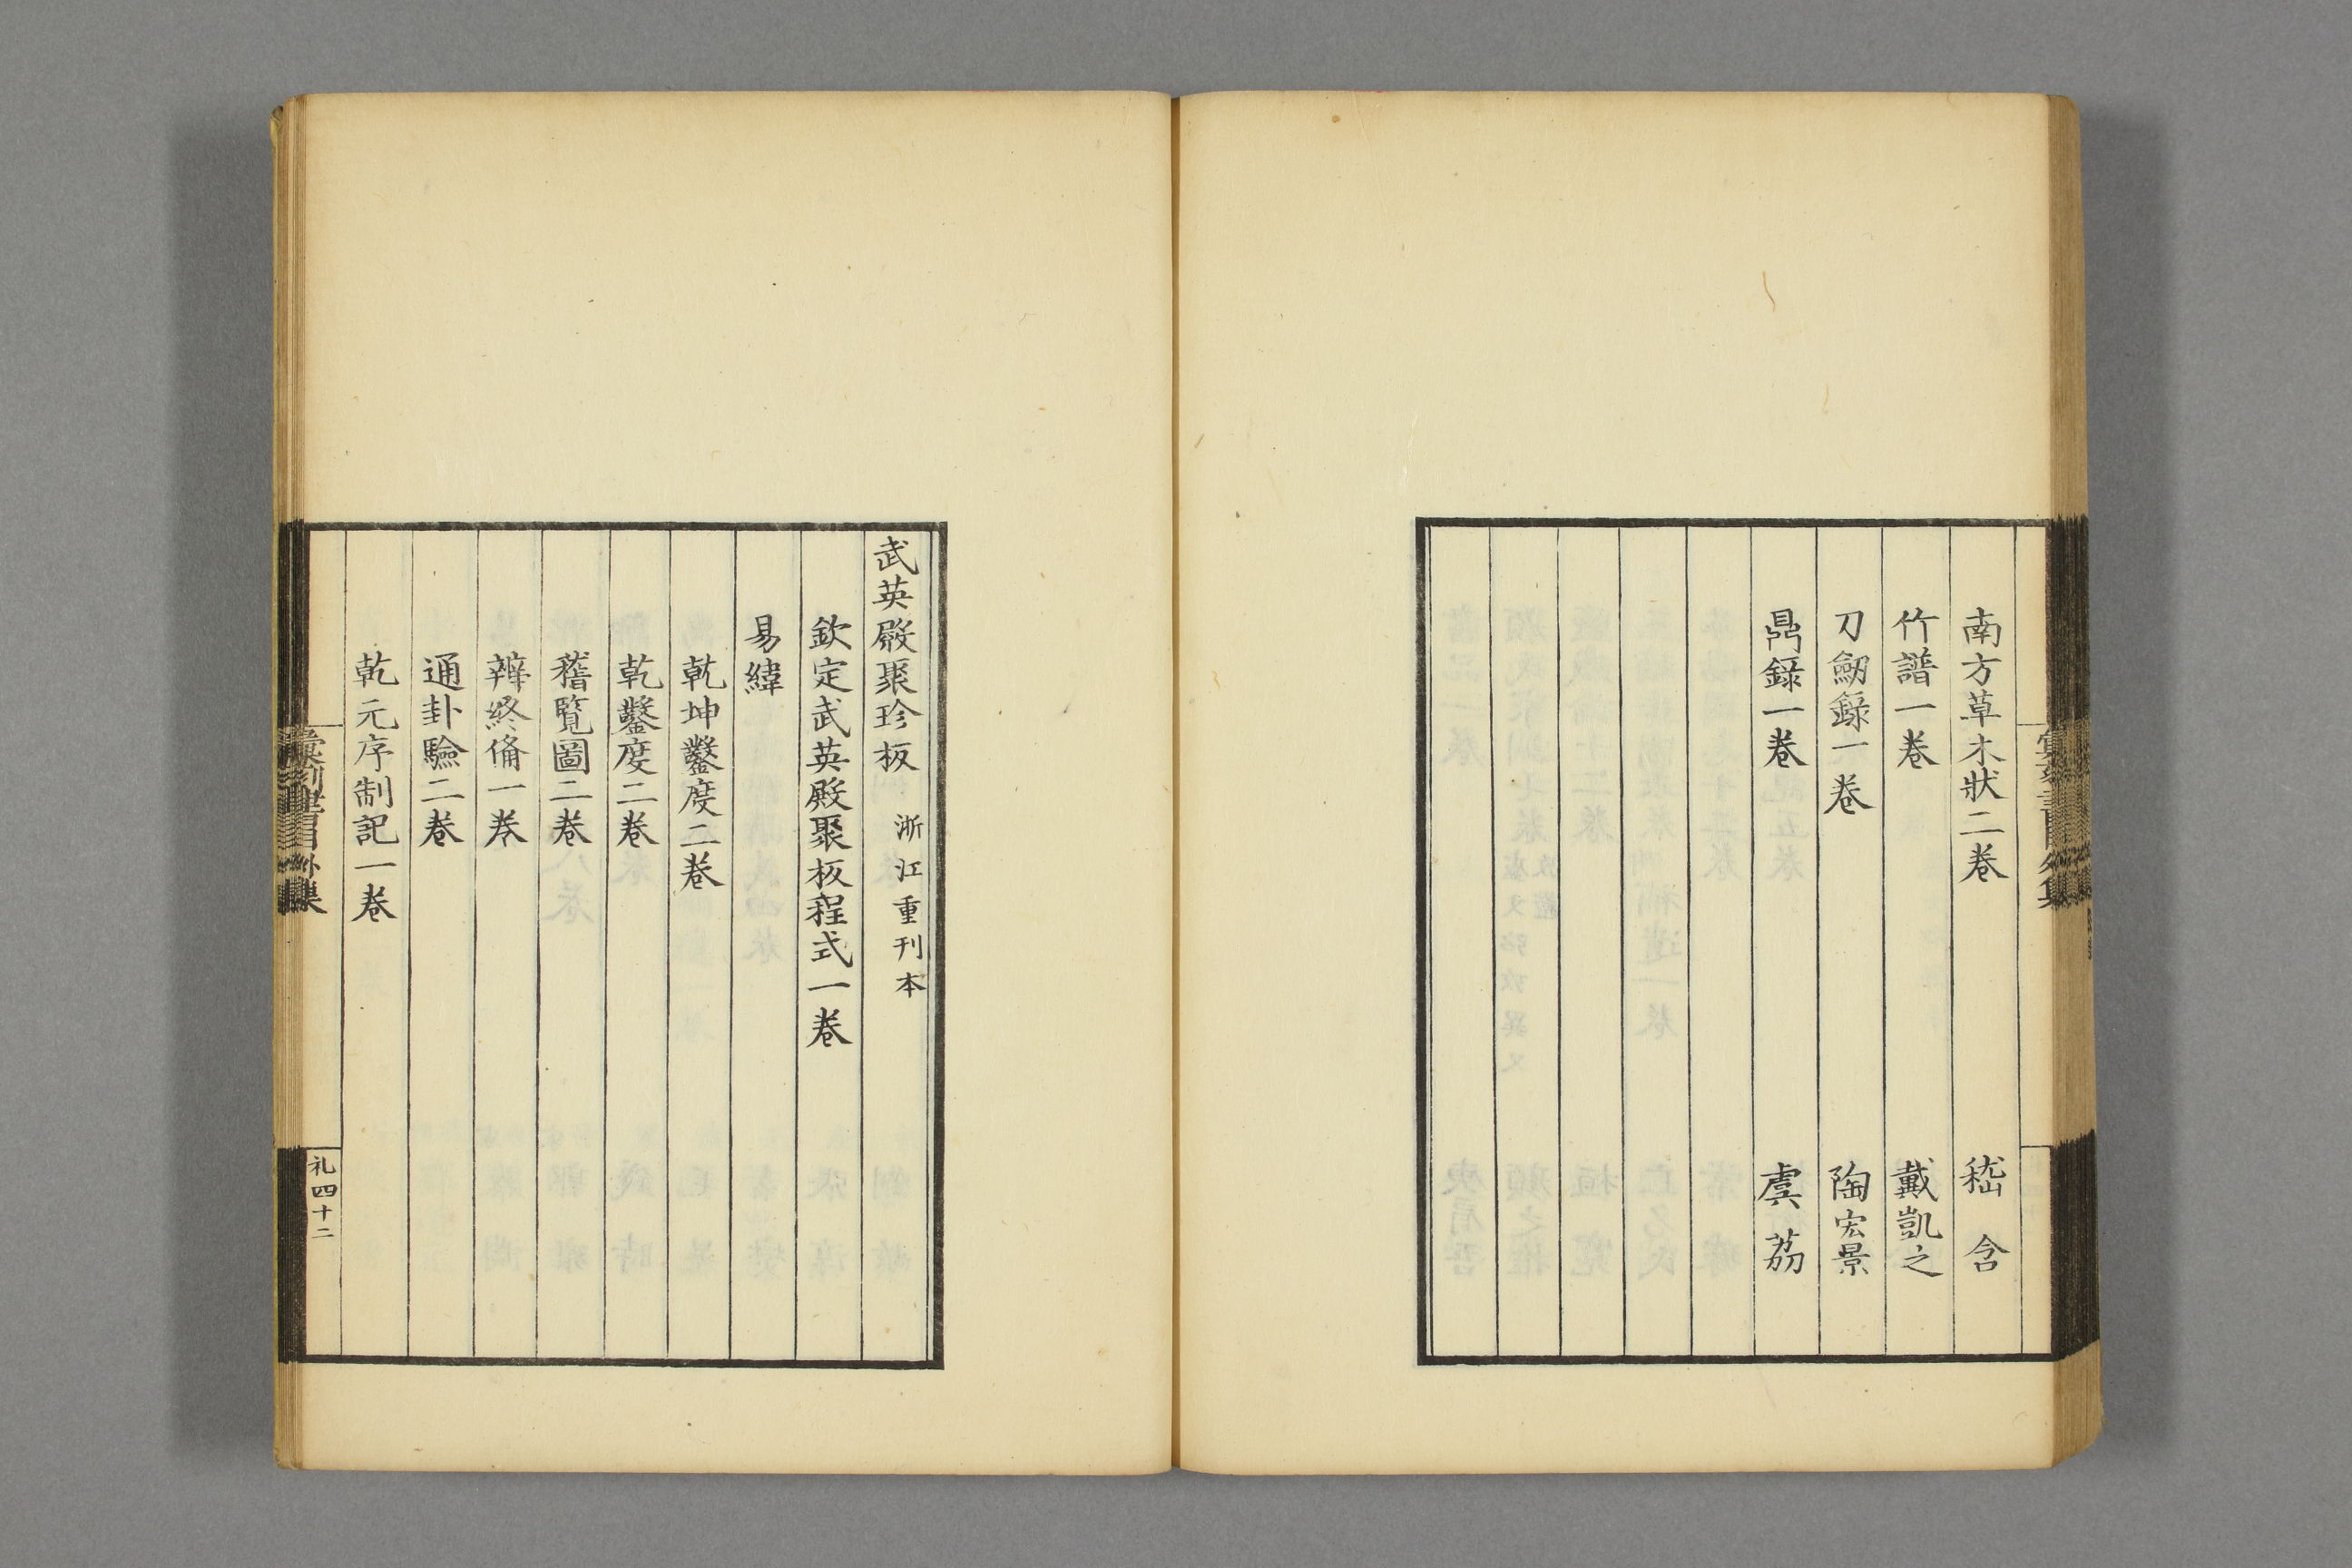 南方草木狀二卷 嵇含
竹譜一卷 戴凱之
刀劒錄一卷 陶宏景
鼎錄一卷 虞荔
武英殿聚珍板 浙江重刊本
欽定武英殿聚板程式一卷
易緯
乾坤鑿度二卷
乾鑿度二卷
稽覽圖二卷
辨終備一卷
通卦驗二卷
乾元序制記一卷
彙刻書目外集
礼四十二